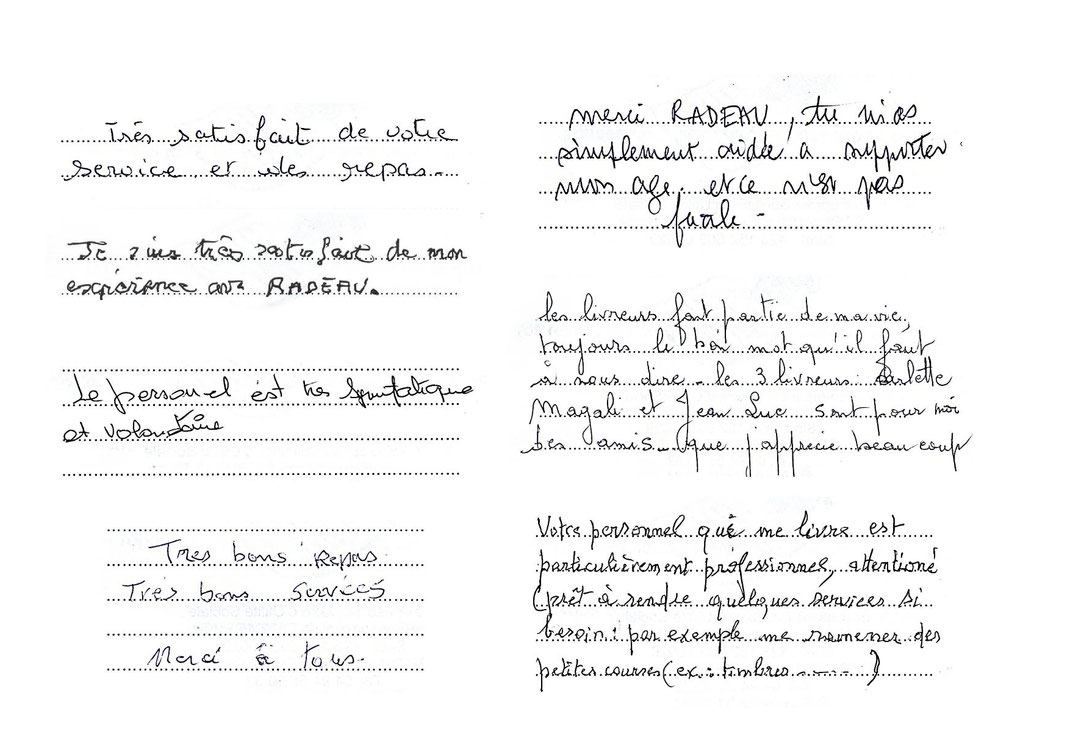 Très satisfait de votre
service et des repas.
Je suis très satisfait de mon
expérience avec RADEAU.
Le personnel est très sympatique
et volontaire
Tres bons repas
Tres bons services
Merci à tous.
merci RADEAU, tu m'as
simplement aidée a supporter
mon age. et ce n'est pas
facile -
les livreurs font partie de ma vie,
toujours le bon mot qu'il faut
à nous dire - les 3 livreurs: Arlette
Magali et Jean Luc sont pour moi
des amis - que j'apprécie beaucoup
Votre personnel qui me livre est
particulièrement professionnel, attentioné
(prêt à rendre quelques services si
besoin: par exemple me ramener des
petites courses (ex.: timbres ------ )